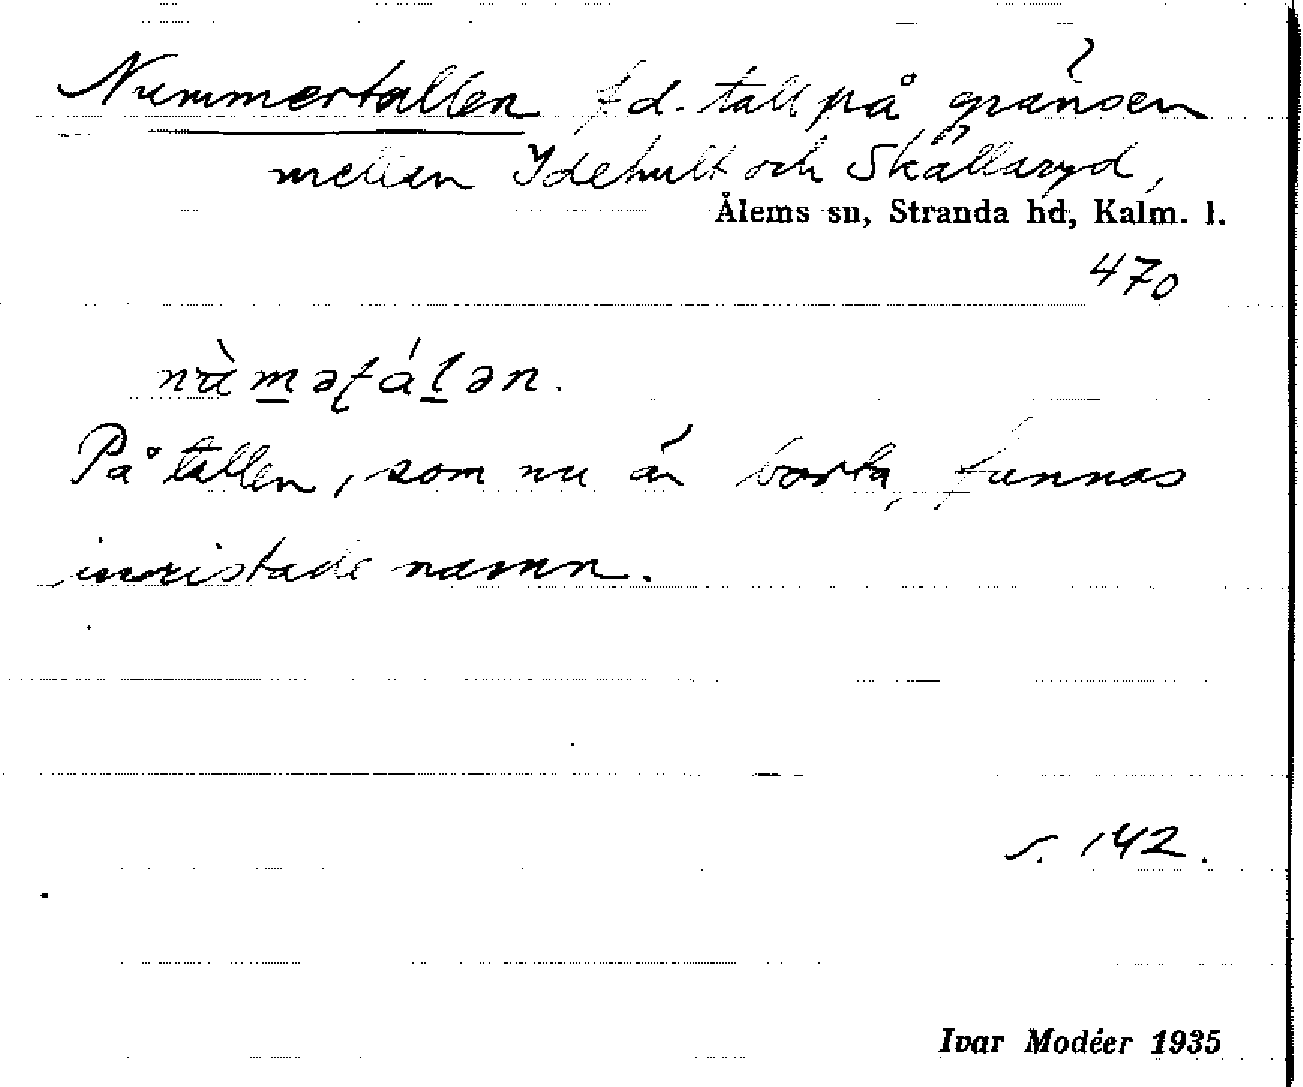 Nummertallen f.d. tall på gränsen
mellan Idehult och Skällaryd,
Ålems sn, Stranda hd, Kalm. l.
470
På tallen, som nu är borta, funnos
inristade namn.
s. 142.
Ivar Modéer 1935